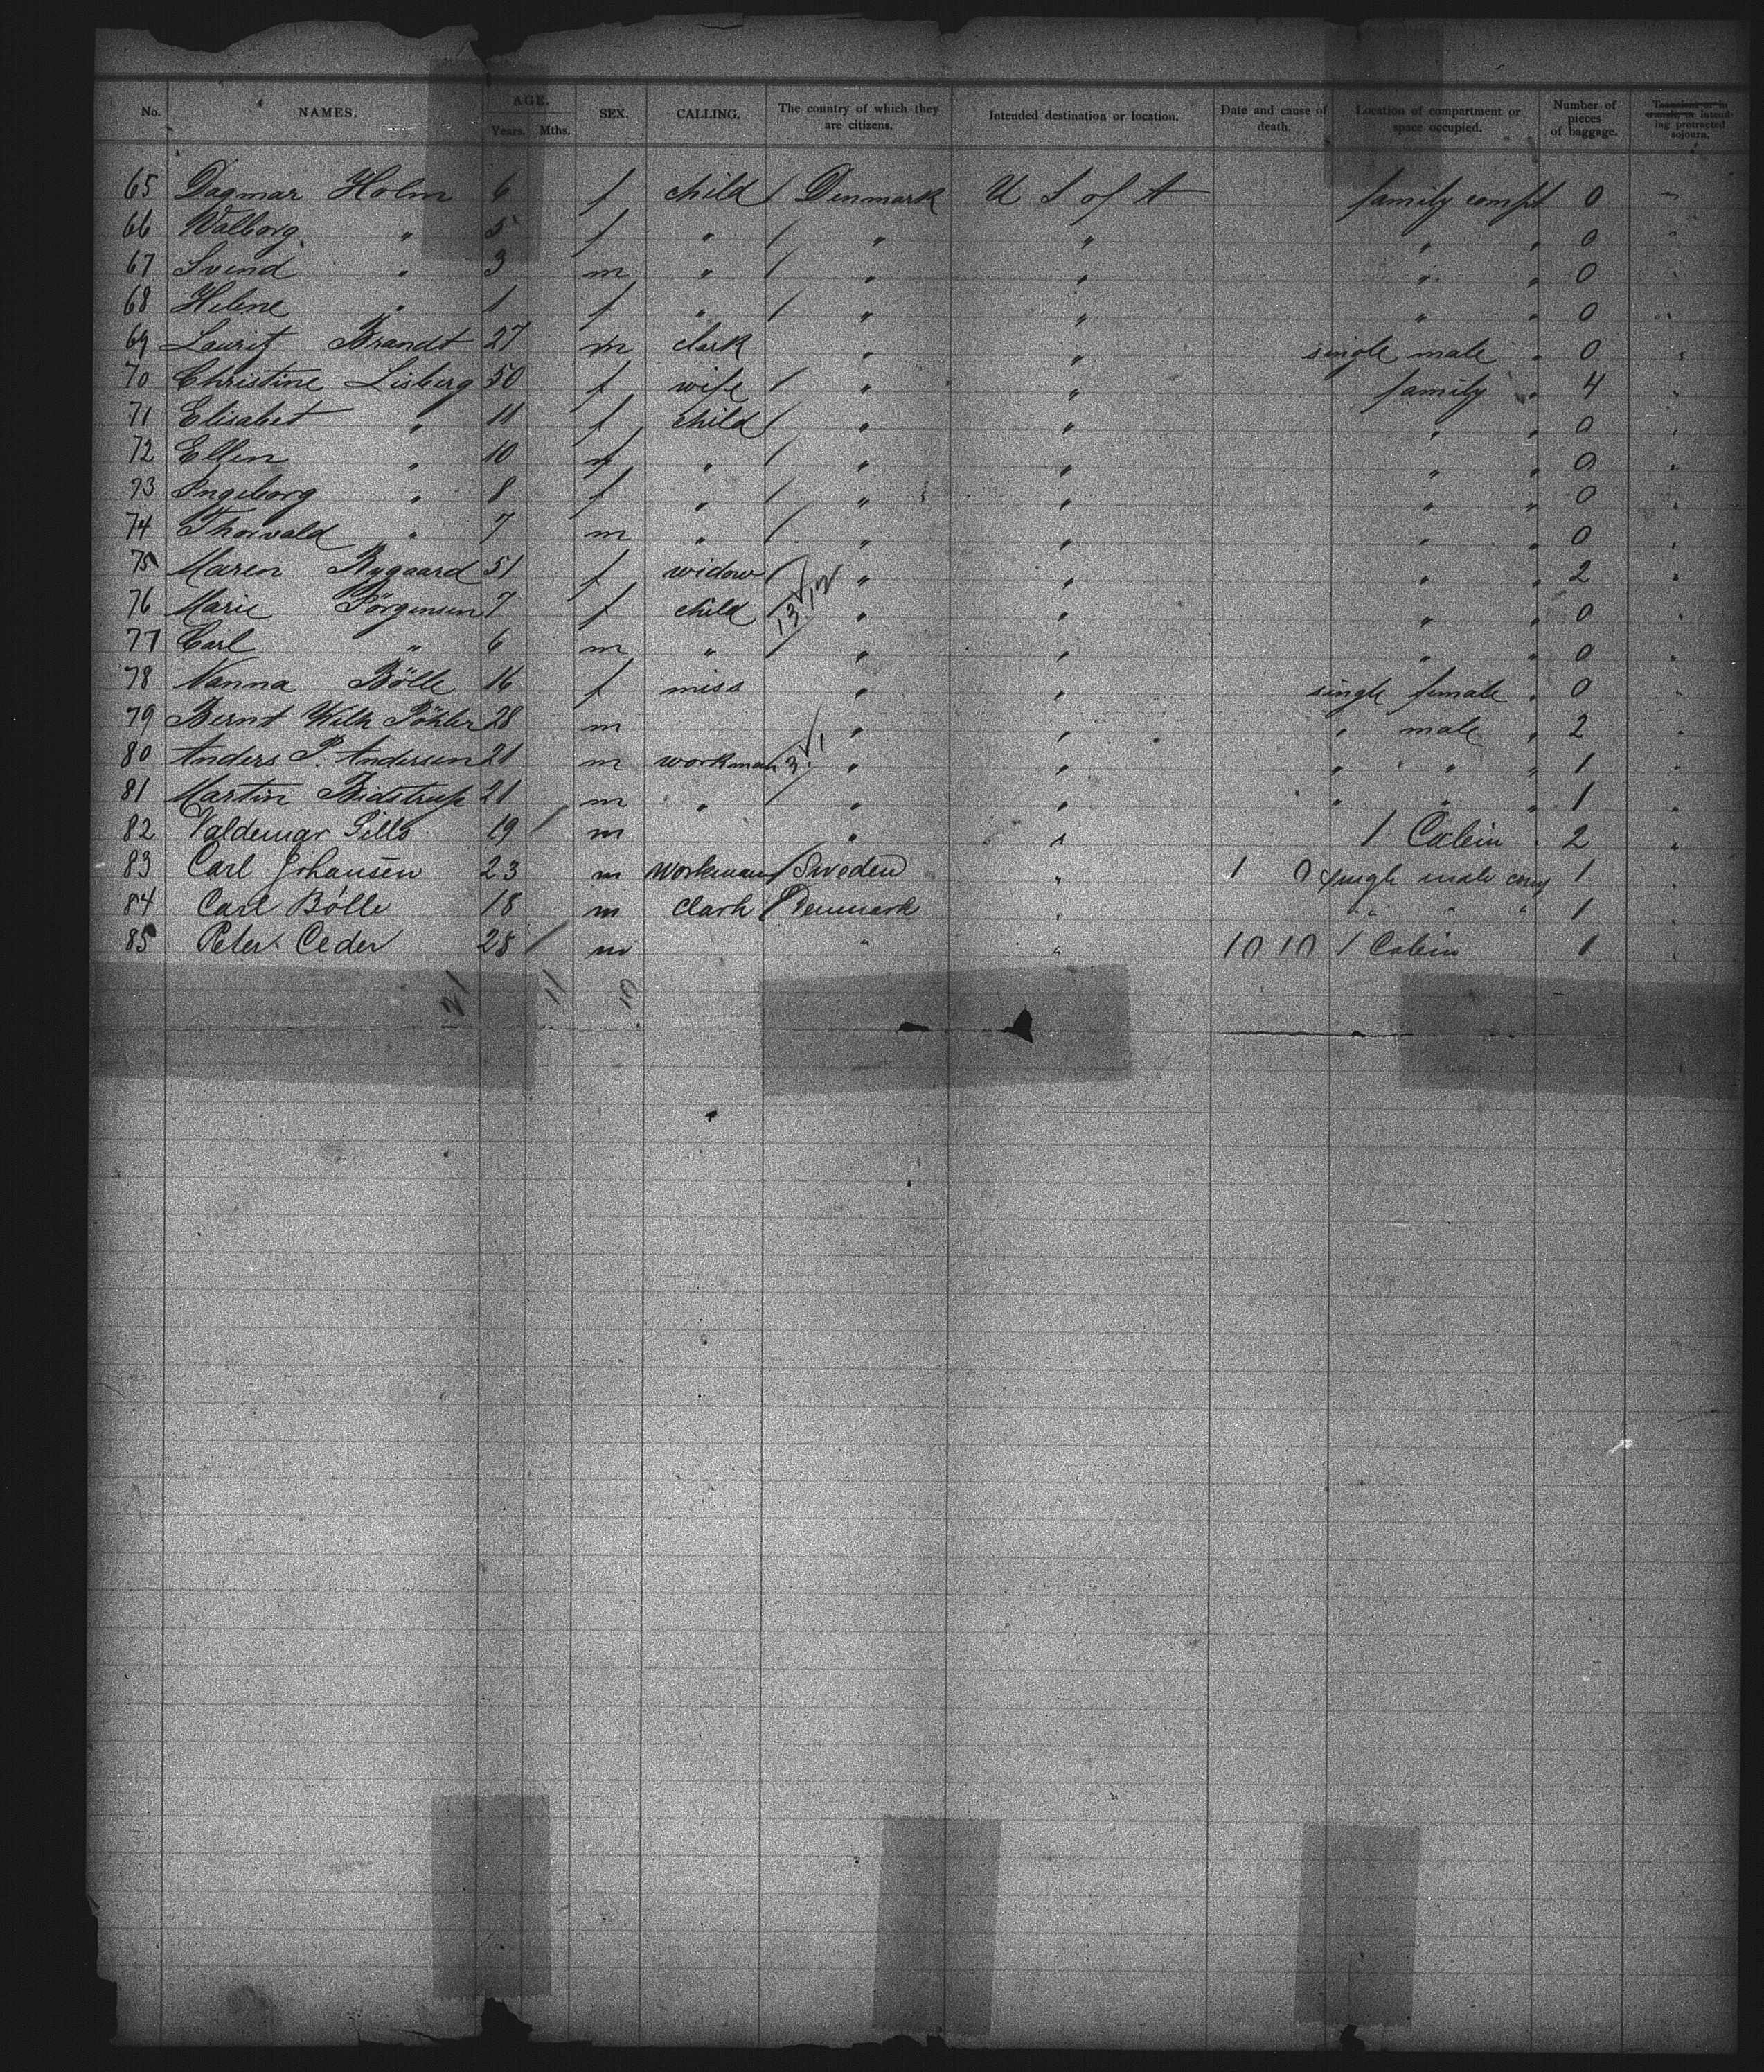 No. NAMES. AGE. Years. Mths. SEX. CALLING. The country of which they are citizens. Intended destination or location. Date and cause of death. Location of compartment or space occupied. Number of pieces of baggage. Transient or in transit or intending protracted sojourn.
65 Dagmar Holm 6 f child / Denmark U S of A family compt 0 "
66 Walborg " 5 f " / " " " " 0 "
67 Svend " 3 m " / " " " " 0 "
68 Helene " 1 f " / " " " " 0 "
69 Lauritz Brandt 27 m clark " " single male " 0 "
70 Christine Lisberg 50 f wife / " " family " 4 "
71 Elisabet " 11 f child / " " " " 0 "
72 Ellen " 10 f " / " " " " 0 "
73 Ingeborg " 8 f " / " " " " 0 "
74 Thorvald " 7 m " / " " " " 0 "
75 Maren Rygaard 51 f widow / " " " " 2 "
76 Marie Jörgensen 7 f child / 13 12 " " " " 0 "
77 Carl " 6 m " / " " " " 0 "
78 Nanna Bölle 16 f miss " " single female " 0 "
79 Bernt Wilh 28 m " " " male " 2 "
80 Anders P. Andersen 21 m workman 3 1 " " " " " 1 "
81 Martin Bidstrup 21 m " / " " " " " 1 "
82 Valdemar 19 / m " " 1 Cabin " 2 "
83 Carl Johansen 23 m workman / Sweden " 1 0 single male comp 1 "
84 Carl Bölle 18 m clark / Denmark " " " " " 1 "
85 Peter Ceder 28 / m " " 10 10 1 Cabin 1 "
21 11 10